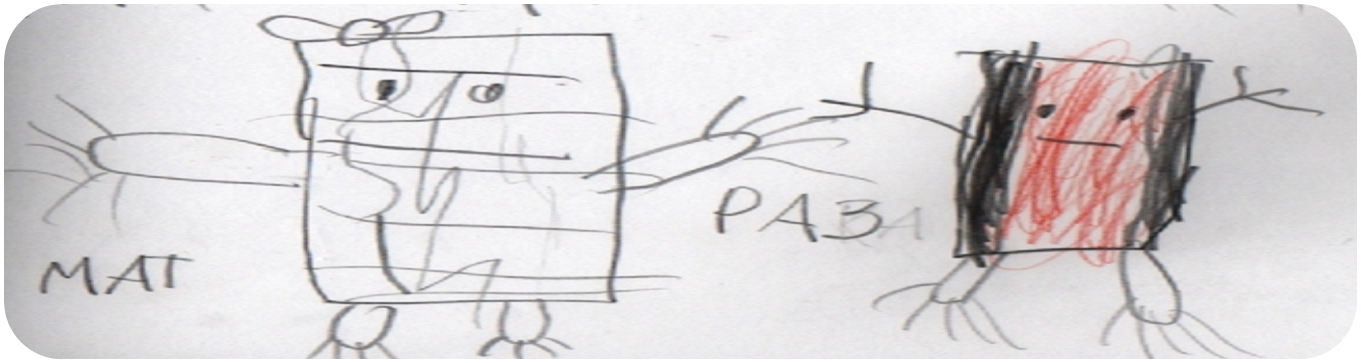 MAT
PABA